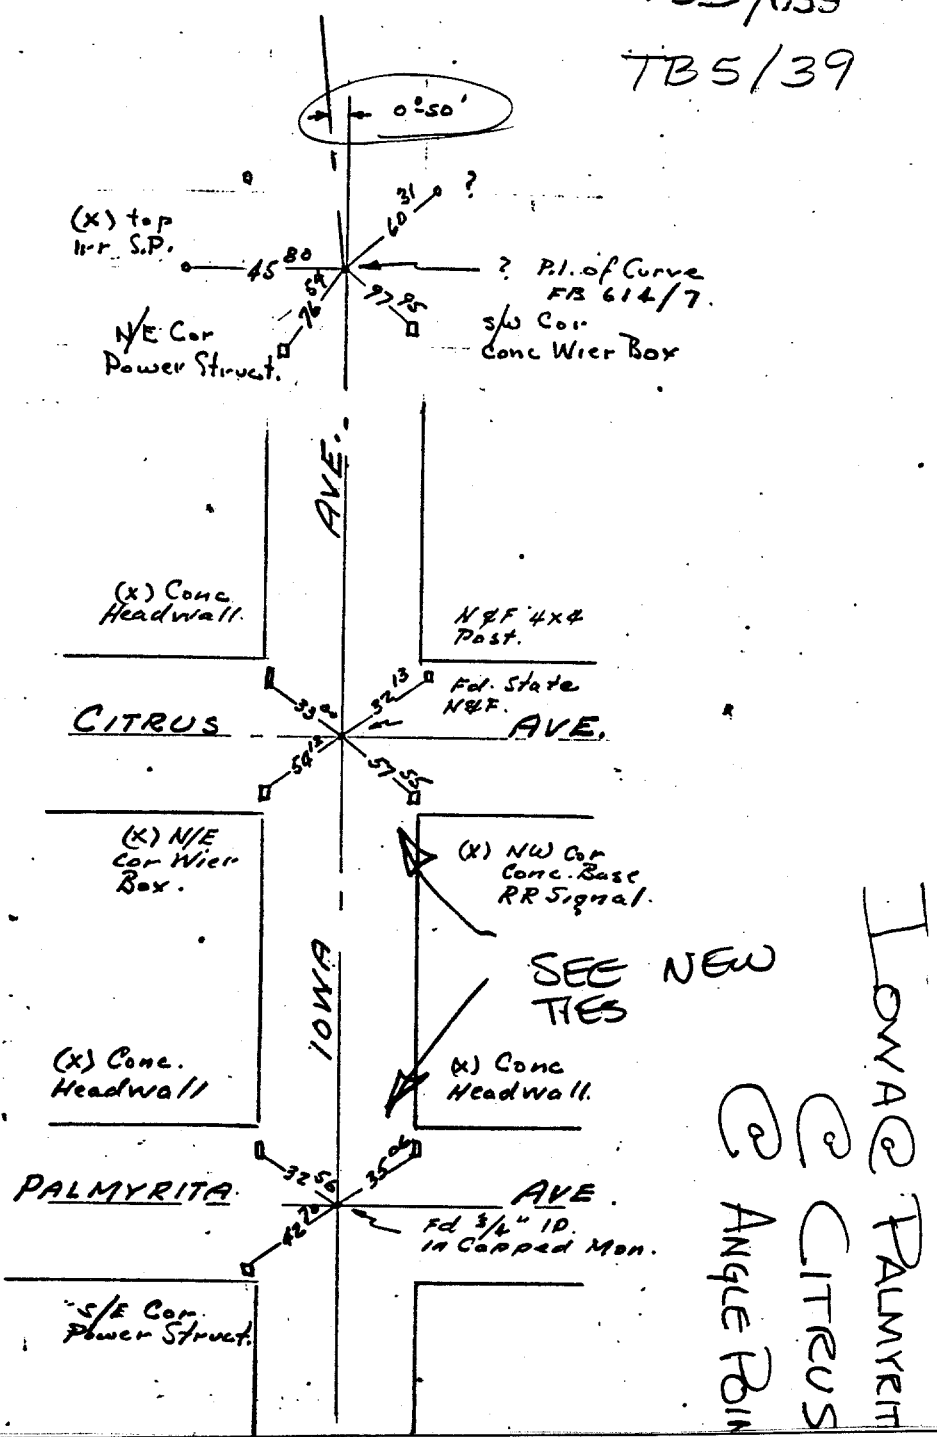 TB5/39
0°50'
(x) top
irr S.P.
45 80
60 31
?
76 54
97 95
? P.I. of Curve
FB 614/7.
N/E Cor
Power Struct.
S/W Cor
Conc Wier Box
AVE.
(x) Conc
Headwall.
N&F 4x4
Post.
32 13
Fd. State
N&F.
CITRUS
AVE.
54 12
57 55
(x) N/E
Cor Wier
Box.
(x) NW Cor
Conc. Base
RR Signal.
SEE NEW
TIES
IOWA
(x) Conc.
Headwall
(x) Conc
Headwall.
32 56
35 06
PALMYRITA
AVE.
42 70
Fd 3/4" I.P.
in Capped Mon.
S/E Cor.
Power Struct.
IOWA @ PALMYRIT
@ CITRUS
@ ANGLE POIN